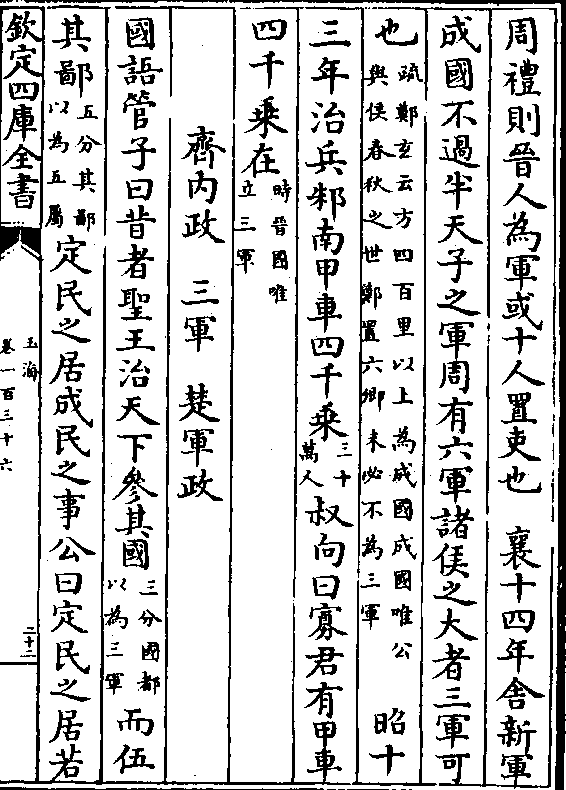 周禮則晉人為軍或十人置吏也　襄十四年舍新軍
成國不過半天子之軍周有六軍諸侯之大者三軍可
也疏鄭玄云方四百里以上為成國成國唯公與侯春秋之世鄭置六卿未必不為三軍　昭十
三年治兵邾南甲車四千乘三十萬人叔向曰寡君有甲車
四千乘在時晉國唯立三軍
齊內政　三軍　楚軍政
國語管子曰昔者聖王治天下參其國三分國都以為三軍而伍
其鄙五分其鄙以為五屬定民之居成民之事公曰定民之居若
欽定四庫全書
玉海
卷一百三十六
二十二